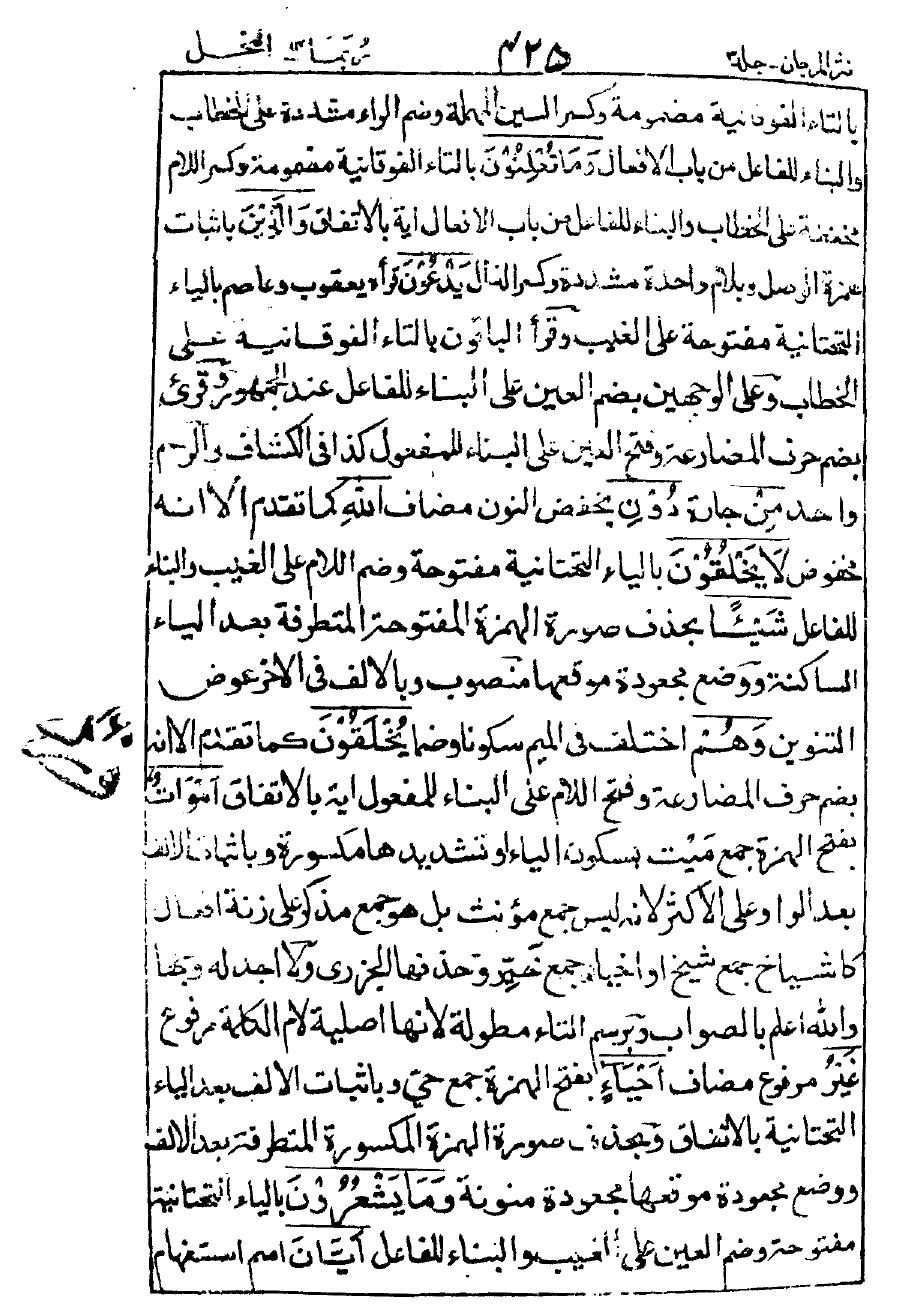 نثر المرجان - جلد ٣ ٤٢٥ ربما ١٤ النحل
بالتاء الفوقانية مضمومة وكسر السين المهملة وضم الراء مشددة على الخطاب
والبناء للفاعل من باب الافعال وَمَا تُعْلِنُوْنَ بالتاء الفوقانية مضمومة وكسر اللام
مخففة على الخطاب والبناء للفاعل من باب الافعال اية بالاتفاق وَالَّذِيْنَ باثبات
همزة الوصل وبلام واحدة مشددة وكسر الذال يَدْعُوْنَ قرأه يعقوب وعاصم بالياء
التحتانية مفتوحة على الغيب وقرأ الباقون بالتاء الفوقانية على
الخطاب وعلى الوجهين بضم العين على البناء للفاعل عند الجمهور وقرئ
بضم حرف المضارعة وفتح العين على البناء للمفعول كذا فى الكشاف والرسم
واحد مِنْ جارة دُوْنِ بخفض النون مضاف اللهِ كما تقدم ألا انه
مخفوض لَا يَخْلُقُوْنَ بالياء التحتانية مفتوحة وضم اللام على الغيب والبناء
للفاعل شَيْـًٔا بحذف صورة الهمزة المفتوحة المتطرفة بعد الياء
الساكنة ووضع مجعودة موقعها منصوب وبالالف فى الاخر عوض
التنوين وَهُمْ اختلف فى الميم سكونا وضما يُخْلَقُوْنَ كما تقدم الا انه
بضم حرف المضارعة وفتح اللام على البناء للمفعول اية بالاتفاق اَمْوَاتٌ
بفتح الهمزة جمع مَيْت بسكون الياء او تشديدها مكسورة وباثبات الالف
بعد الواو على الاكثر لانه ليس جمع مؤنث بل هو جمع مذكر على زنة افعال
كاشياخ جمع شيخ او اخيار جمع خَيِّر وحذفها الجزرى ولا اجد له وجها
والله اعلم بالصواب وبرسم التاء مطولة لانها اصلية لام الكلمة مرفوع
غَيْرُ مرفوع مضاف اَحْيَآءٍ بفتح الهمزة جمع حيّ وباثبات الالف بعد الياء
التحتانية بالاتفاق وبحذف صورة الهمزة المكسورة المتطرفة بعد الالف
ووضع مجعودة موقعها مجعودة منونة وَمَا يَشْعُرُوْنَ بالياء التحتانية
مفتوحة وضم العين على الغيب والبناء للفاعل اَيَّانَ اسم استفهام